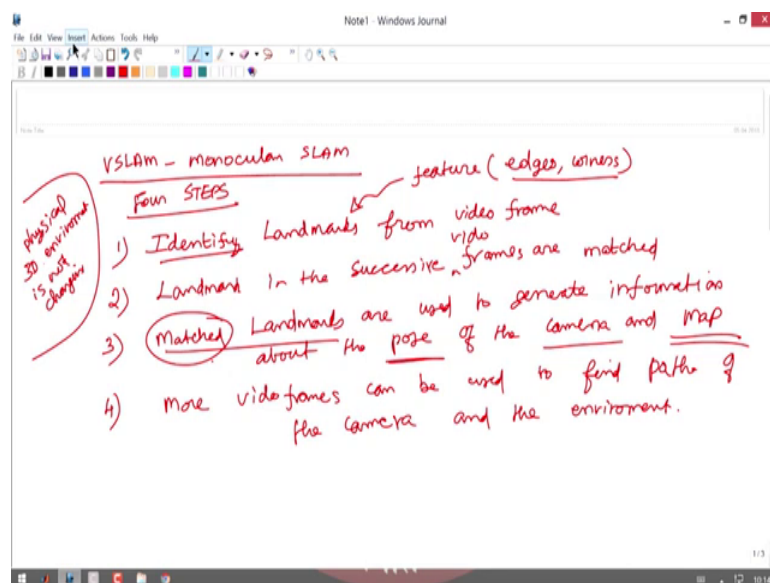 Note1 - Windows Journal
File Edit View Insert Actions Tools Help
B I
Note Title
VSLAM - monocular SLAM
feature (edges, corners)
Four STEPS
physical
3D enviroment
is not
changing
1) Identify Landmarks from video frame
video
2) Landmark in the successive frames are matched
3) Matched Landmarks are used to generate information
about the pose of the camera and map
4) More videoframes can be used to find paths of
the camera and the enviroment.
1/3